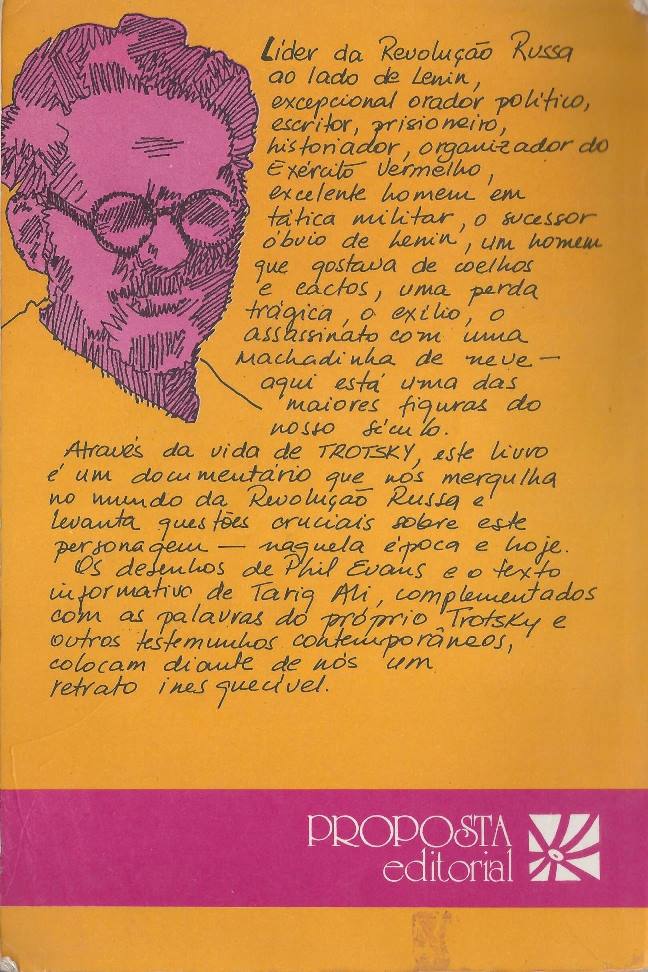 Líder da Revolução Russa
ao lado de Lenin,
excepcional orador político,
escritor, prisioneiro,
historiador, organizador do
Exército Vermelho,
excelente homem em
tática militar, o sucessor
óbvio de Lenin, um homem
que gostava de coelhos
e cactos, uma perda
trágica, o exílio, o
assassinato com uma
machadinha de neve —
aqui está uma das
maiores figuras do
nosso século.
Através da vida de TROTSKY, este livro
é um documentário que nos mergulha
no mundo da Revolução Russa e
levanta questões cruciais sobre este
personagem — naquela época e hoje.
Os desenhos de Phil Evans e o texto
informativo de Tariq Ali, complementados
com as palavras do próprio Trotsky e
outros testemunhos contemporâneos,
colocam diante de nós um
retrato inesquecível.
PROPOSTA
editorial